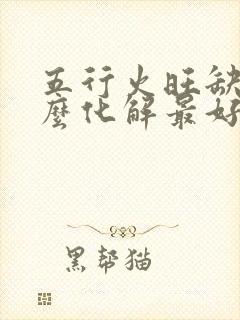 五行火旺缺
麼化解最好
黑帮猫